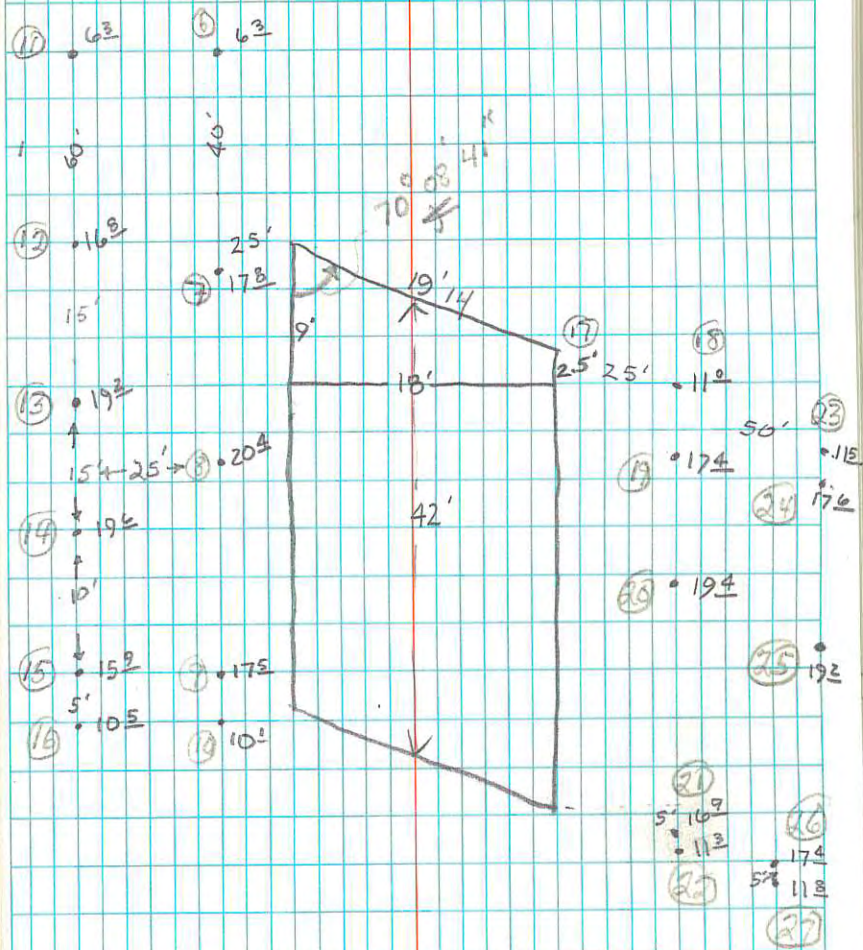 11 6 3
6 6 3
60'
40'
70° 08' 41"
12 16 8
25'
7 17 8
15'
19' 14
9'
17
2.5'
18'
25'
18
11 0
13 19 2
50'
23
.115
15' 25' → 8 20 4
19 17 4
24 17 6
14 19 6
42'
10'
20 19 4
15 15 9
9 17 5
25
19 2
5'
16 10 5
10 1
21
5' 16 9
11 3
22
26
17 4
5' 11 8
27